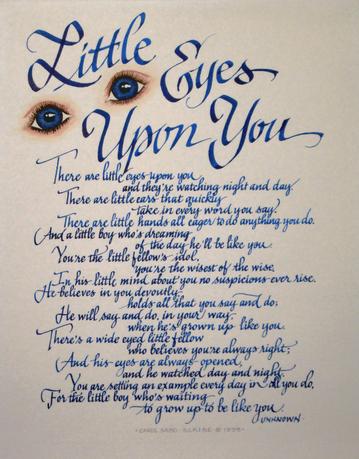 Little Eyes
Upon You
There are little eyes upon you
and they're watching night and day.
There are little ears that quickly
take in every word you say.
There are little hands all eager to do anything you do.
And a little boy who's dreaming
of the day he'll be like you.
You're the little fellow's idol,
you're the wisest of the wise.
In his little mind about you no suspicions ever rise.
He believes in you devoutly,
holds all that you say and do;
He will say and do, in your way,
when he's grown up like you.
There's a wide eyed little fellow
who believes you're always right,
And his eyes are always opened,
and he watched day and night.
You are setting an example every day in all you do,
For the little boy who's waiting
to grow up to be like you.
UNKNOWN